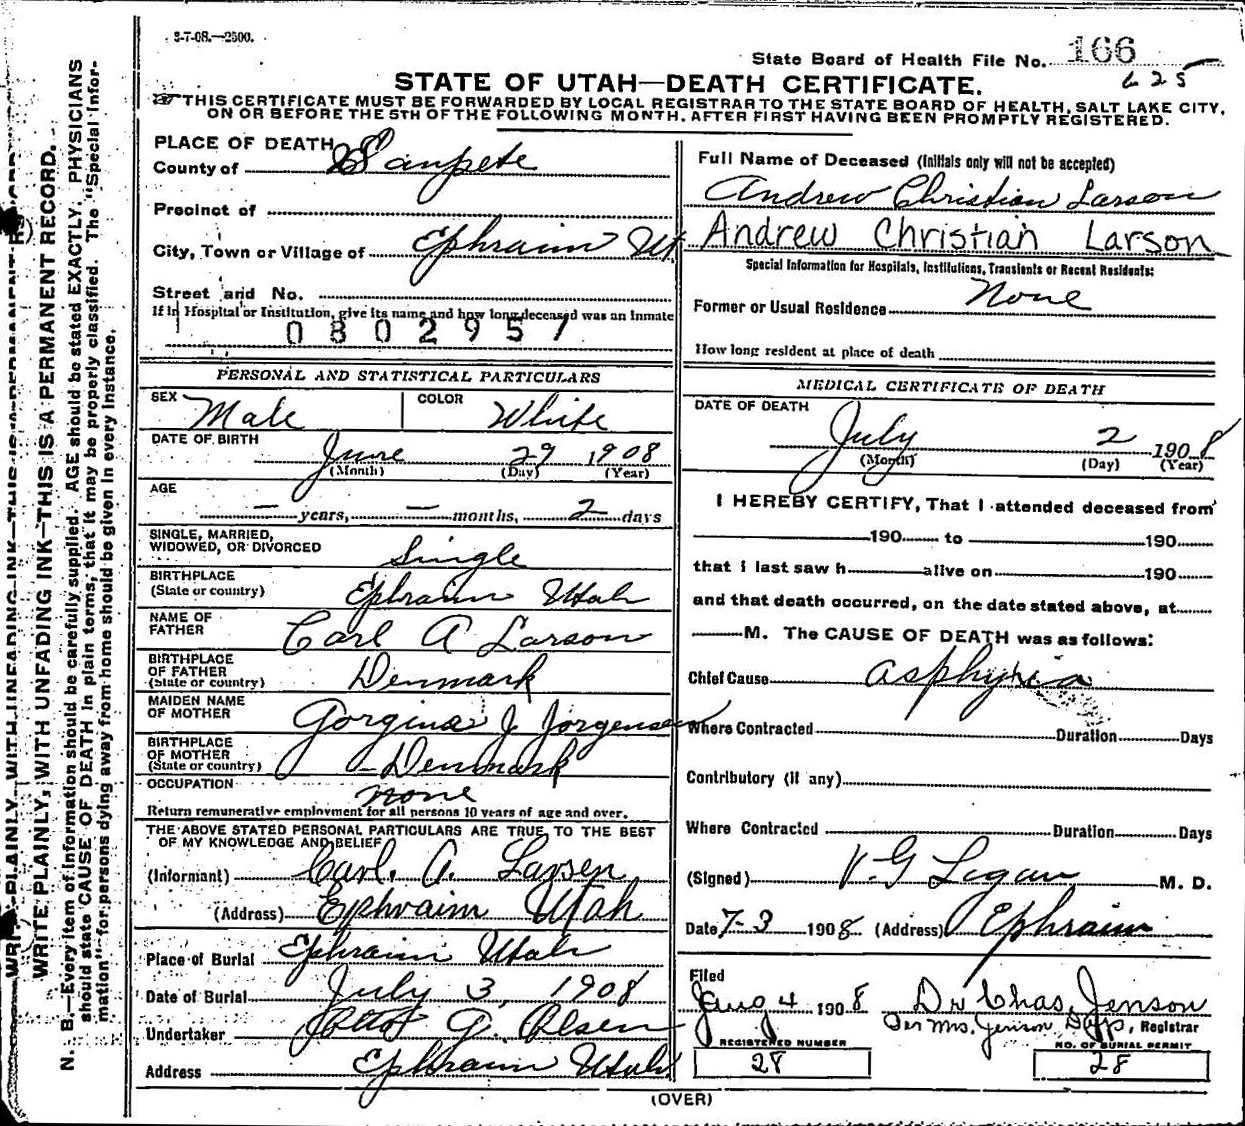 3-7-08.—2500.
State Board of Health File No. 166
625
STATE OF UTAH—DEATH CERTIFICATE.
THIS CERTIFICATE MUST BE FORWARDED BY LOCAL REGISTRAR TO THE STATE BOARD OF HEALTH, SALT LAKE CITY,
ON OR BEFORE THE 5TH OF THE FOLLOWING MONTH, AFTER FIRST HAVING BEEN PROMPTLY REGISTERED.
PLACE OF DEATH
County of Sanpete
Precinct of
City, Town or Village of Ephraim Ut
Street and No.
If in Hospital or Institution, give its name and how long deceased was an inmate
0802957
PERSONAL AND STATISTICAL PARTICULARS
SEX Male COLOR White
DATE OF BIRTH June 29 1908
(Month) (Day) (Year)
AGE
— years, — months, 2 days
SINGLE, MARRIED,
WIDOWED, OR DIVORCED Single
BIRTHPLACE
(State or country) Ephraim Utah
NAME OF
FATHER Carl A Larson
BIRTHPLACE
OF FATHER
(State or country) Denmark
MAIDEN NAME
OF MOTHER Gorgina J Jorgensen
BIRTHPLACE
OF MOTHER
(State or country) Denmark
OCCUPATION none
Return remunerative employment for all persons 10 years of age and over.
THE ABOVE STATED PERSONAL PARTICULARS ARE TRUE TO THE BEST
OF MY KNOWLEDGE AND BELIEF
(Informant) Carl. A. Larsen
(Address) Ephraim Utah
Place of Burial Ephraim Utah
Date of Burial July 3, 1908
Undertaker G. Olsen
Address Ephraim Utah
Full Name of Deceased (Initials only will not be accepted)
Andrew Christian Larson
Andrew Christian Larson
Special Information for Hospitals, Institutions, Transients or Recent Residents:
Former or Usual Residence None
How long resident at place of death
MEDICAL CERTIFICATE OF DEATH
DATE OF DEATH
July 2 1908
(Month) (Day) (Year)
I HEREBY CERTIFY, That I attended deceased from
190 to 190
that I last saw h alive on 190
and that death occurred, on the date stated above, at
M. The CAUSE OF DEATH was as follows:
Chief Cause asphyxia
Where Contracted Duration Days
Contributory (if any)
Where Contracted Duration Days
(Signed) V. G Logan M. D.
Date 7-3 1908 (Address) Ephraim
Filed
Aug 4 1908 Dr Chas. Jenson
Per Mrs. Jenson, Dep, Registrar
REGISTERED NUMBER
28
NO. OF BURIAL PERMIT
28
(OVER)
WRITE PLAINLY, WITH UNFADING INK—THIS IS A PERMANENT RECORD.
WRITE PLAINLY, WITH UNFADING INK—THIS IS A PERMANENT RECORD.
N. B.—Every item of information should be carefully supplied. AGE should be stated EXACTLY, PHYSICIANS
should state CAUSE OF DEATH in plain terms, that it may be properly classified. The "Special Infor-
mation" for persons dying away from home should be given in every instance.